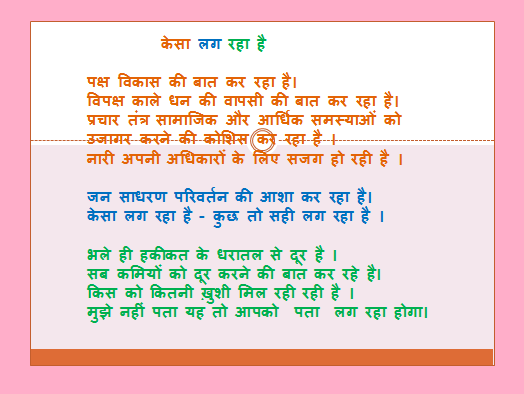 केसा लग रहा है
पक्ष विकास की बात कर रहा है।
विपक्ष काले धन की वापसी की बात कर रहा है।
प्रचार तंत्र सामाजिक और आर्धिक समस्याओं को
उजागर करने की कोशिस कर रहा है ।
नारी अपनी अधिकारों के लिए सजग हो रही है ।
जन साधरण परिवर्तन की आशा कर रहा है।
केसा लग रहा है - कुछ तो सही लग रहा है ।
भले ही हकीकत के धरातल से दूर है ।
सब कमियों को दूर करने की बात कर रहे है।
किस को कितनी ख़ुशी मिल रही रही है ।
मुझे नहीं पता यह तो आपको पता लग रहा होगा।